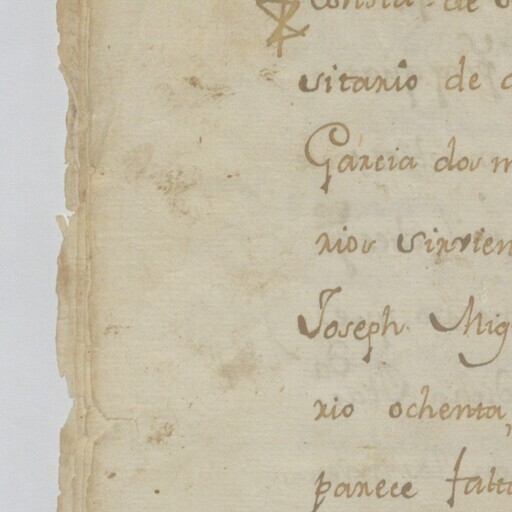 Consta de
sitario de
Garcia dos m
rios sirvien
Joseph Mig
rio ochenta,
parece falt